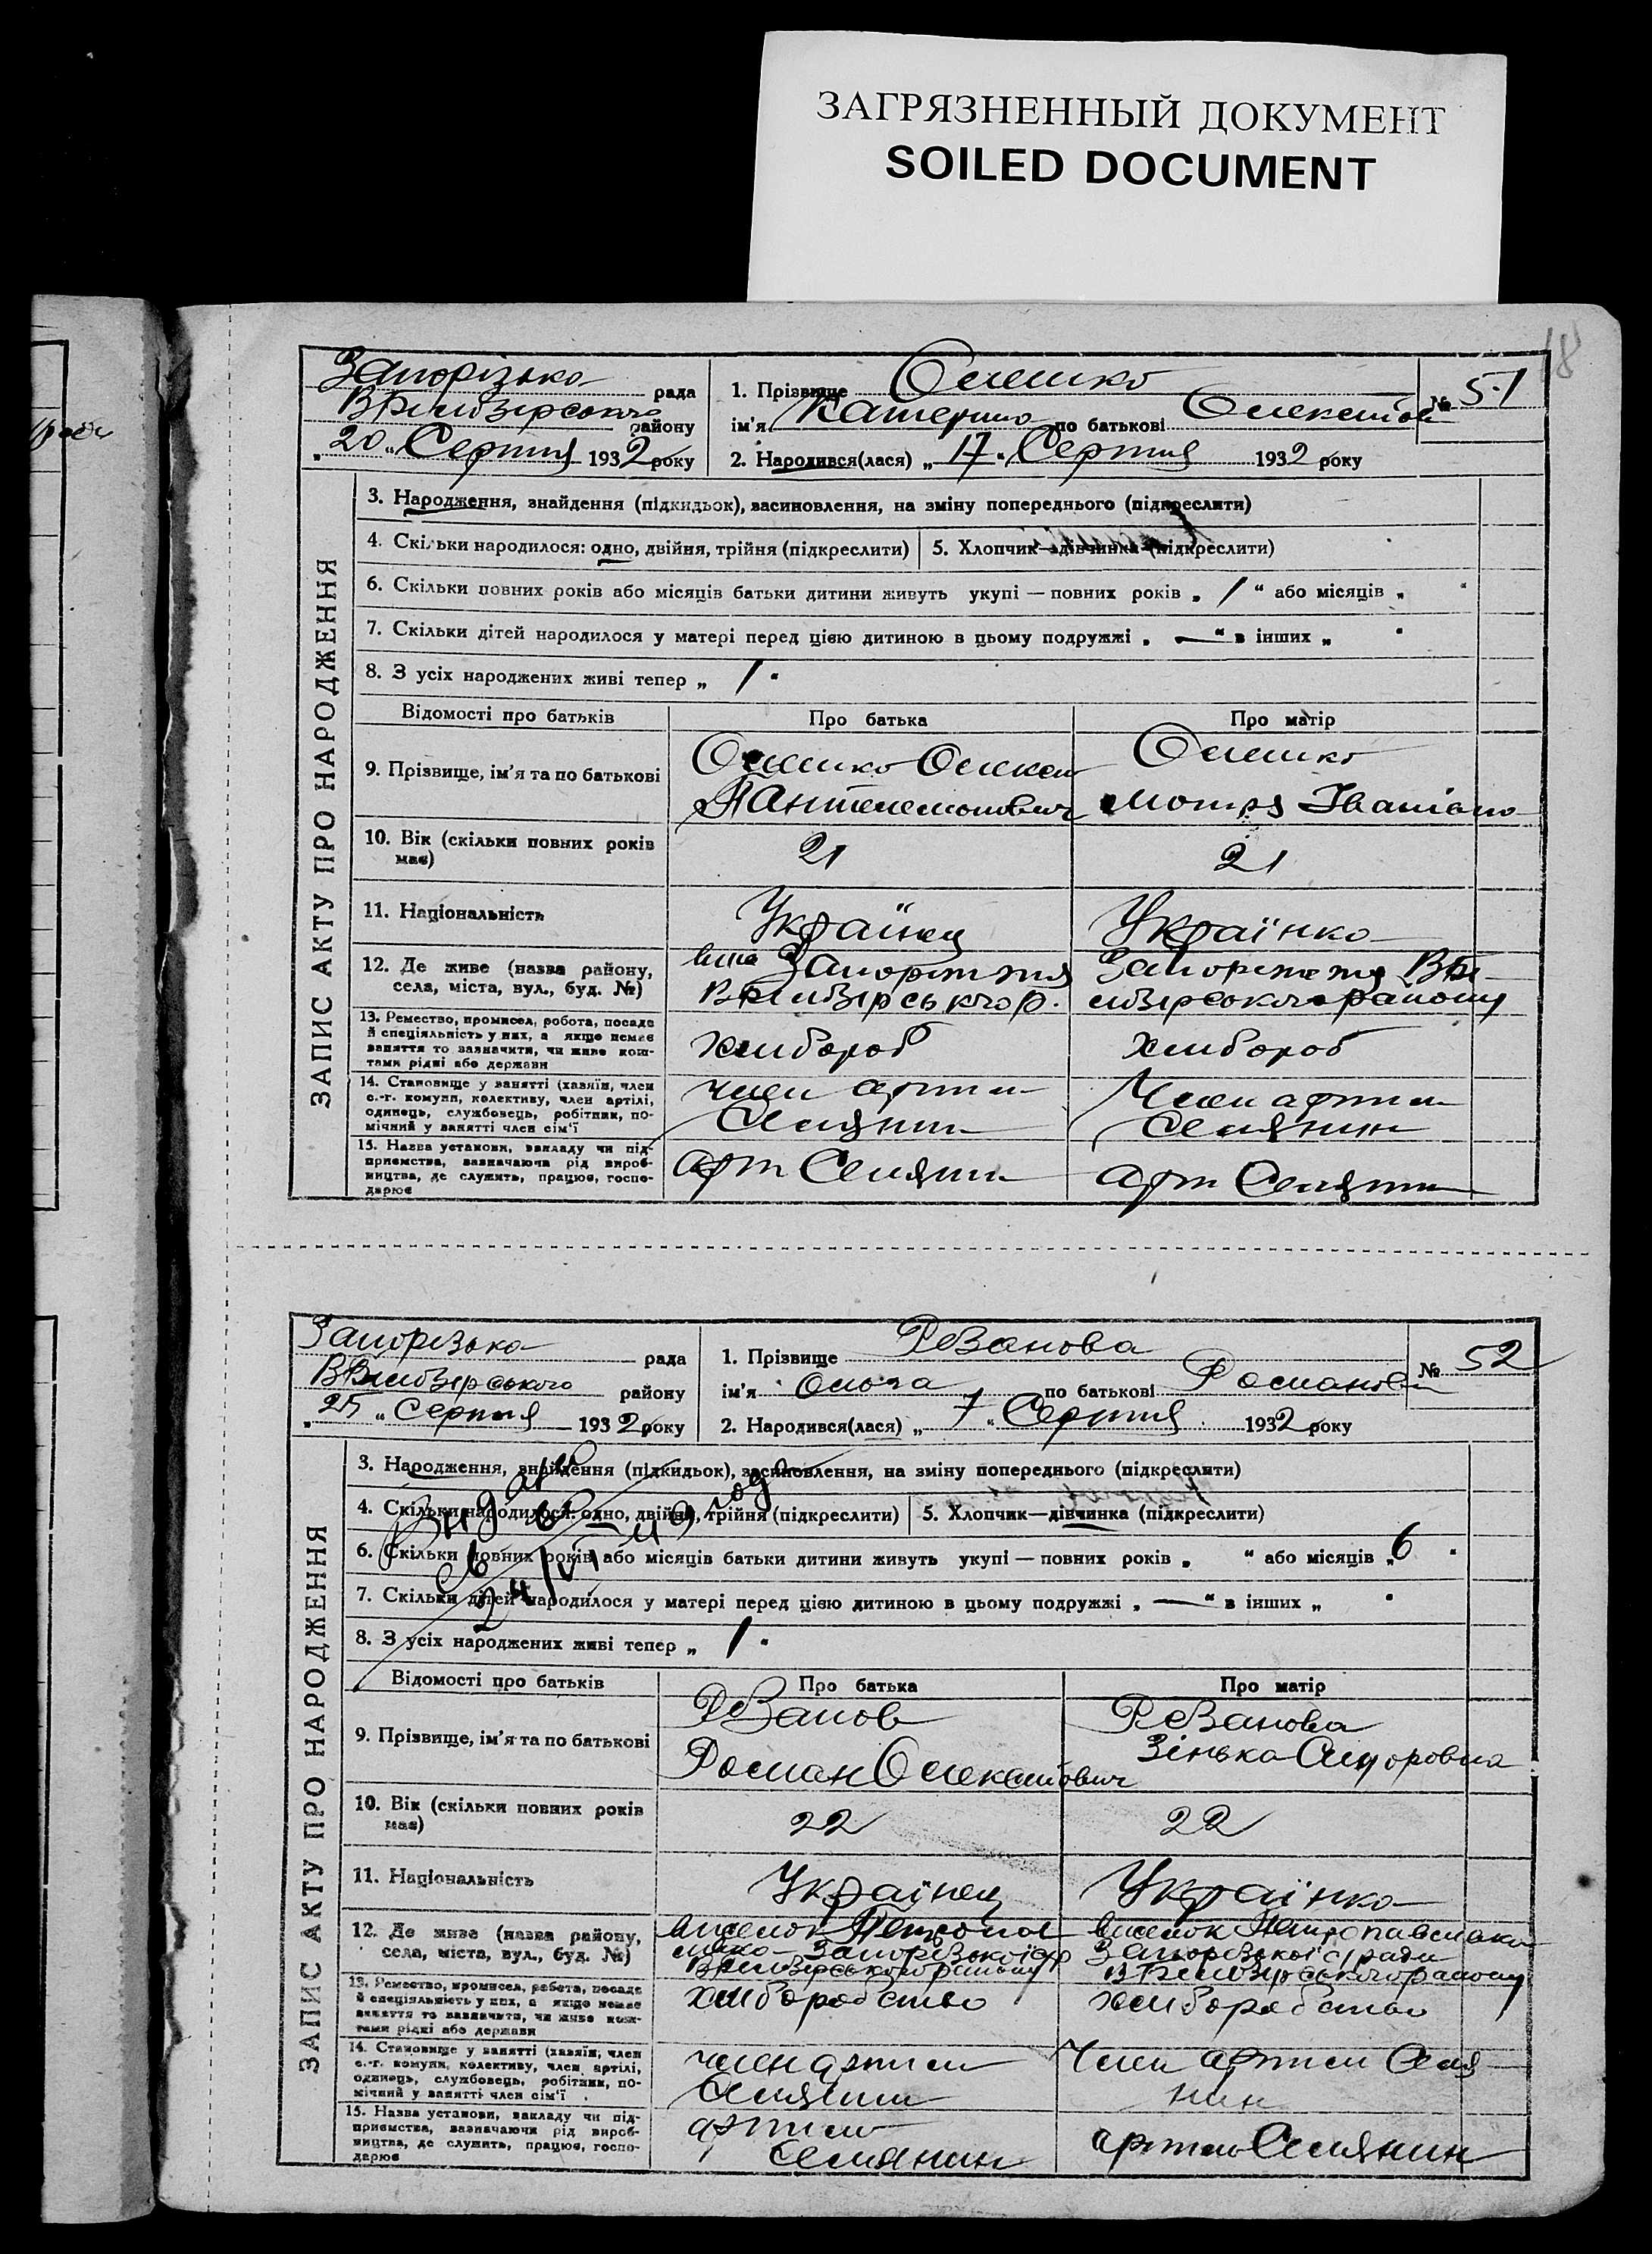 ЗАГРЯЗНЕННЫЙ ДОКУМЕНТ
SOILED DOCUMENT
18
Запорізька рада
району
„20“ Серпня 1932 року
1. Прізвище Олешко
ім'я Катерина по батькові Олексіївна
№ 51
2. Народився(лася) „17“ Серпня 1932 року
ЗАПИС АКТУ ПРО НАРОДЖЕННЯ
3. Народження, знайдення (підкидьок), засиновлення, на зміну попереднього (підкреслити)
4. Скільки народилося: одно, двійня, трійня (підкреслити) 5. Хлопчик—дівчинка (підкреслити)
6. Скільки повних років або місяців батьки дитини живуть укупі — повних років „1“ або місяців „ “
7. Скільки дітей народилося у матері перед цією дитиною в цьому подружжі „—“ в інших „ “
8. З усіх народжених живі тепер „1“
Відомості про батьків Про батька Про матір
9. Прізвище, ім'я та по батькові
Олешко Олекси Олешко
Пантелемонович Мотря Іванівна
10. Вік (скільки повних років має) 21 21
11. Національність Українец Українка
12. Де живе (назва району, села, міста, вул., буд. №)
Запоріжжя Запоріжжя
району
13. Ремество, промисел, робота, посада й спеціяльність у них, а якщо немає заняття то зазначити, чи живе коштами рідні або держави
хлібороб хлібороб
14. Становище у занятті (хазяїн, член с.-г. комуни, колективу, член артілі, одинець, службовець, робітник, помічний у занятті член сім'ї
член артіли Член артіли
Селянин Селянин
15. Назва установи, закладу чи підприємства, зазначаючи рід виробництва, де служить, працює, господарює
арт Селянин арт Селянин
Запорізька рада
району
„25“ Серпня 1932 року
1. Прізвище Рєзанова
ім'я Ольга по батькові Романовн
№ 52
2. Народився(лася) „7“ Серпня 1932 року
ЗАПИС АКТУ ПРО НАРОДЖЕННЯ
3. Народження, знайдення (підкидьок), засиновлення, на зміну попереднього (підкреслити)
4. Скільки народилося: одно, двійня, трійня (підкреслити) 5. Хлопчик—дівчинка (підкреслити)
6. Скільки повних років або місяців батьки дитини живуть укупі — повних років „ “ або місяців „6“
7. Скільки дітей народилося у матері перед цією дитиною в цьому подружжі „—“ в інших „ “
8. З усіх народжених живі тепер „1“
Відомості про батьків Про батька Про матір
9. Прізвище, ім'я та по батькові
Рєзанов Рєзанова
Роман Олексійович Зінька Сидоровна
10. Вік (скільки повних років має) 22 22
11. Національність Українец Українка
12. Де живе (назва району, села, міста, вул., буд. №)
виселок Петропав виселок Петропавловка
Запорізької с/р Запорізької с/ради
району району
13. Ремество, промисел, робота, посада й спеціяльність у них, а якщо немає заняття то зазначити, чи живе коштами рідні або держави
хліборобство хліборобство
14. Становище у занятті (хазяїн, член с.-г. комуни, колективу, член артілі, одинець, службовець, робітник, помічний у занятті член сім'ї
член артіли Член артіли Селя
Селянин нин
15. Назва установи, закладу чи підприємства, зазначаючи рід виробництва, де служить, працює, господарює
артіль артіль Селянин
Селянин